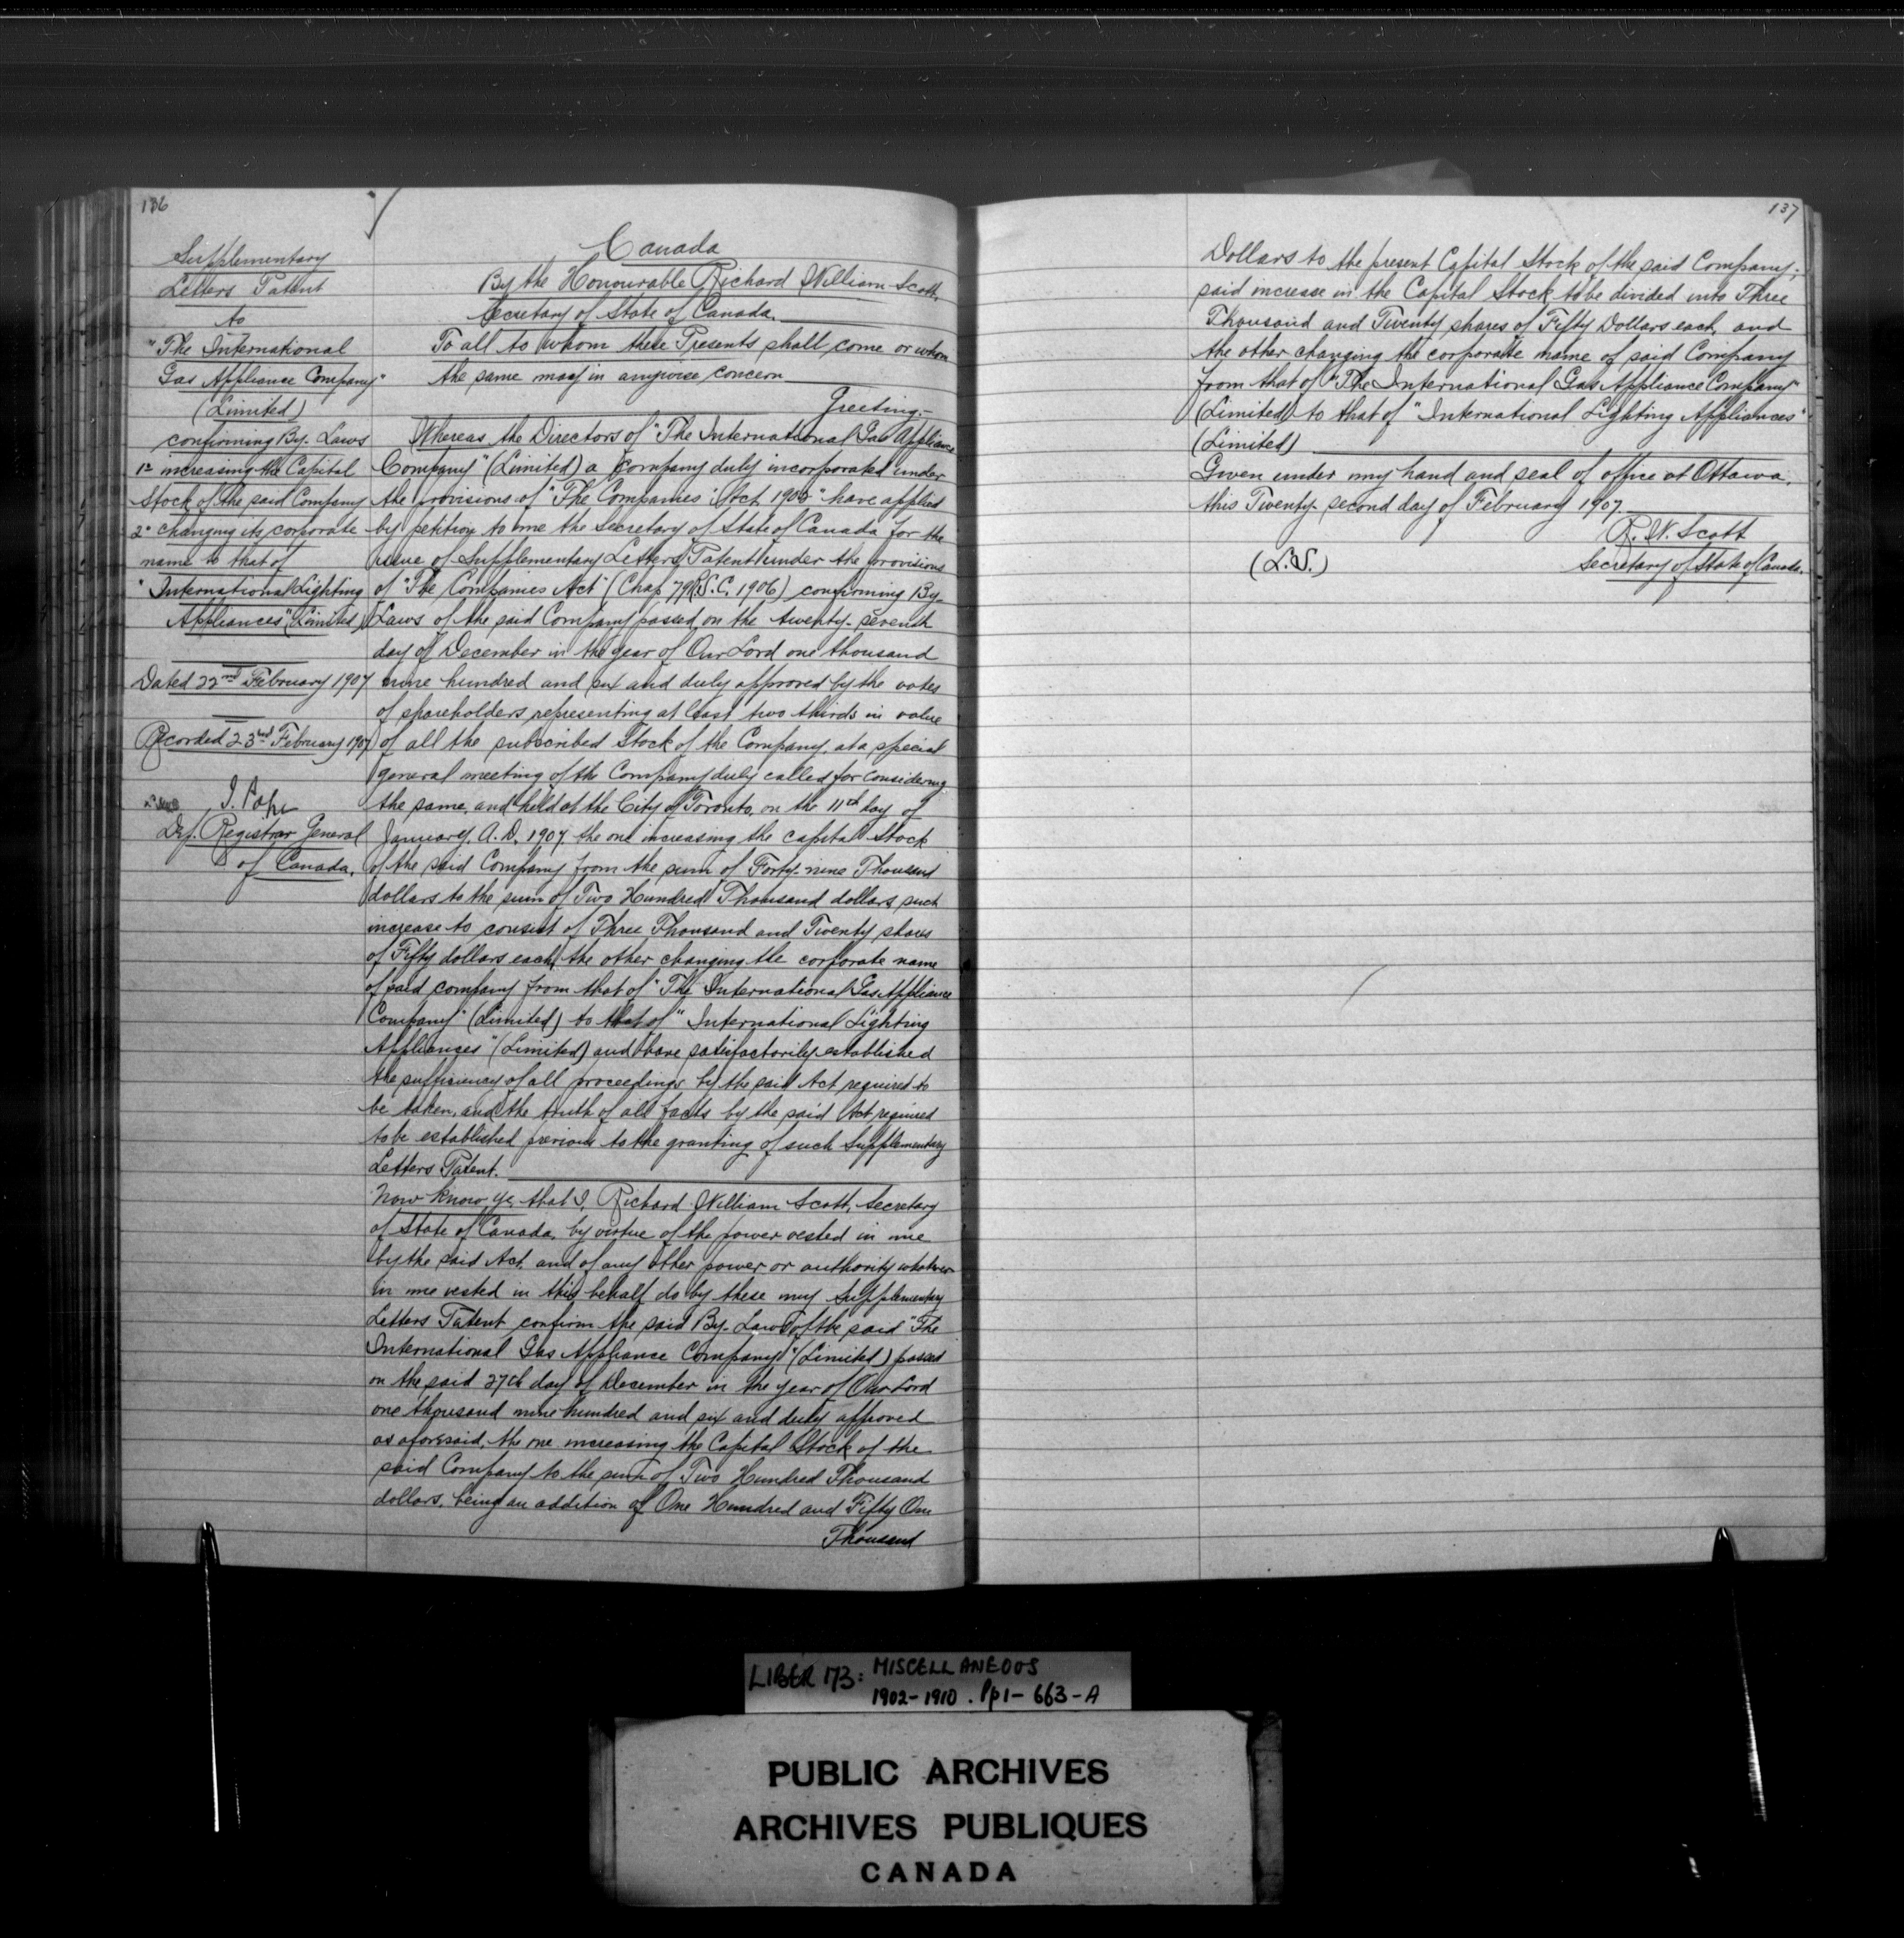 136
Supplementary
Letters Patent
to
"The International
Gas Appliance Company"
(Limited)
confirming By-Laws
1º increasing the Capital
Stock of the said Company
2º changing its corporate
name to that of
"International Lighting
Appliances" (Limited)
Dated 22nd February 1907
Recorded 23rd February 1907
J. Pope
Dep. Registrar General
of Canada.
Canada
By the Honourable Richard William Scott,
Secretary of State of Canada.
To all to whom these Presents shall come or whom
the same may in anywise concern
Greeting:-
Whereas the Directors of "The International Gas Appliance
Company" (Limited) a Company duly incorporated under
the provisions of "The Companies Act, 1902" have applied
by petition to me the Secretary of State of Canada for the
issue of Supplementary Letters Patent under the provisions
of "The Companies Act" (Chap 79 R.S.C. 1906) confirming By-
Laws of the said Company passed on the twenty-seventh
day of December in the year of Our Lord one thousand
nine hundred and six and duly approved by the votes
of shareholders representing at least two thirds in value
of all the subscribed Stock of the Company, at a special
general meeting of the Company duly called for considering
the same, and held at the City of Toronto, on the 11th day of
January, A.D. 1907, the one increasing the capital Stock
of the said Company from the sum of Forty-nine Thousand
dollars to the sum of Two Hundred Thousand dollars such
increase to consist of Three Thousand and Twenty shares
of Fifty dollars each, the other changing the corporate name
of said company from that of "The International Gas Appliance
Company" (Limited) to that of "International Lighting
Appliances" (Limited) and have satisfactorily established
the sufficiency of all proceedings by the said Act required to
be taken, and the truth of all facts by the said Act required
to be established previous to the granting of such Supplementary
Letters Patent.
Now Know Ye, that I, Richard William Scott, Secretary
of State of Canada, by virtue of the power vested in me
by the said Act, and of any other power or authority whatever
in me vested in this behalf do by these my Supplementary
Letters Patent confirm the said By-Laws of the said "The
International Gas Appliance Company" (Limited) passed
on the said 27th day of December in the year of Our Lord
one thousand nine hundred and six and duly approved
as aforesaid, the one increasing the Capital Stock of the
said Company to the sum of Two Hundred Thousand
dollars, being an addition of One Hundred and Fifty One
Thousand
137
Dollars to the present Capital Stock of the said Company;
said increase in the Capital Stock to be divided into Three
Thousand and Twenty shares of Fifty Dollars each, and
the other changing the corporate name of said Company
from that of "The International Gas Appliance Company"
(Limited) to that of "International Lighting Appliances"
(Limited)
Given under my hand and seal of office at Ottawa,
this Twenty-second day of February 1907.
R. W. Scott
(L.S.)
Secretary of State of Canada.
LIBER 173: MISCELLANEOUS
1902-1910. Pp 1-663-A
PUBLIC ARCHIVES
ARCHIVES PUBLIQUES
CANADA